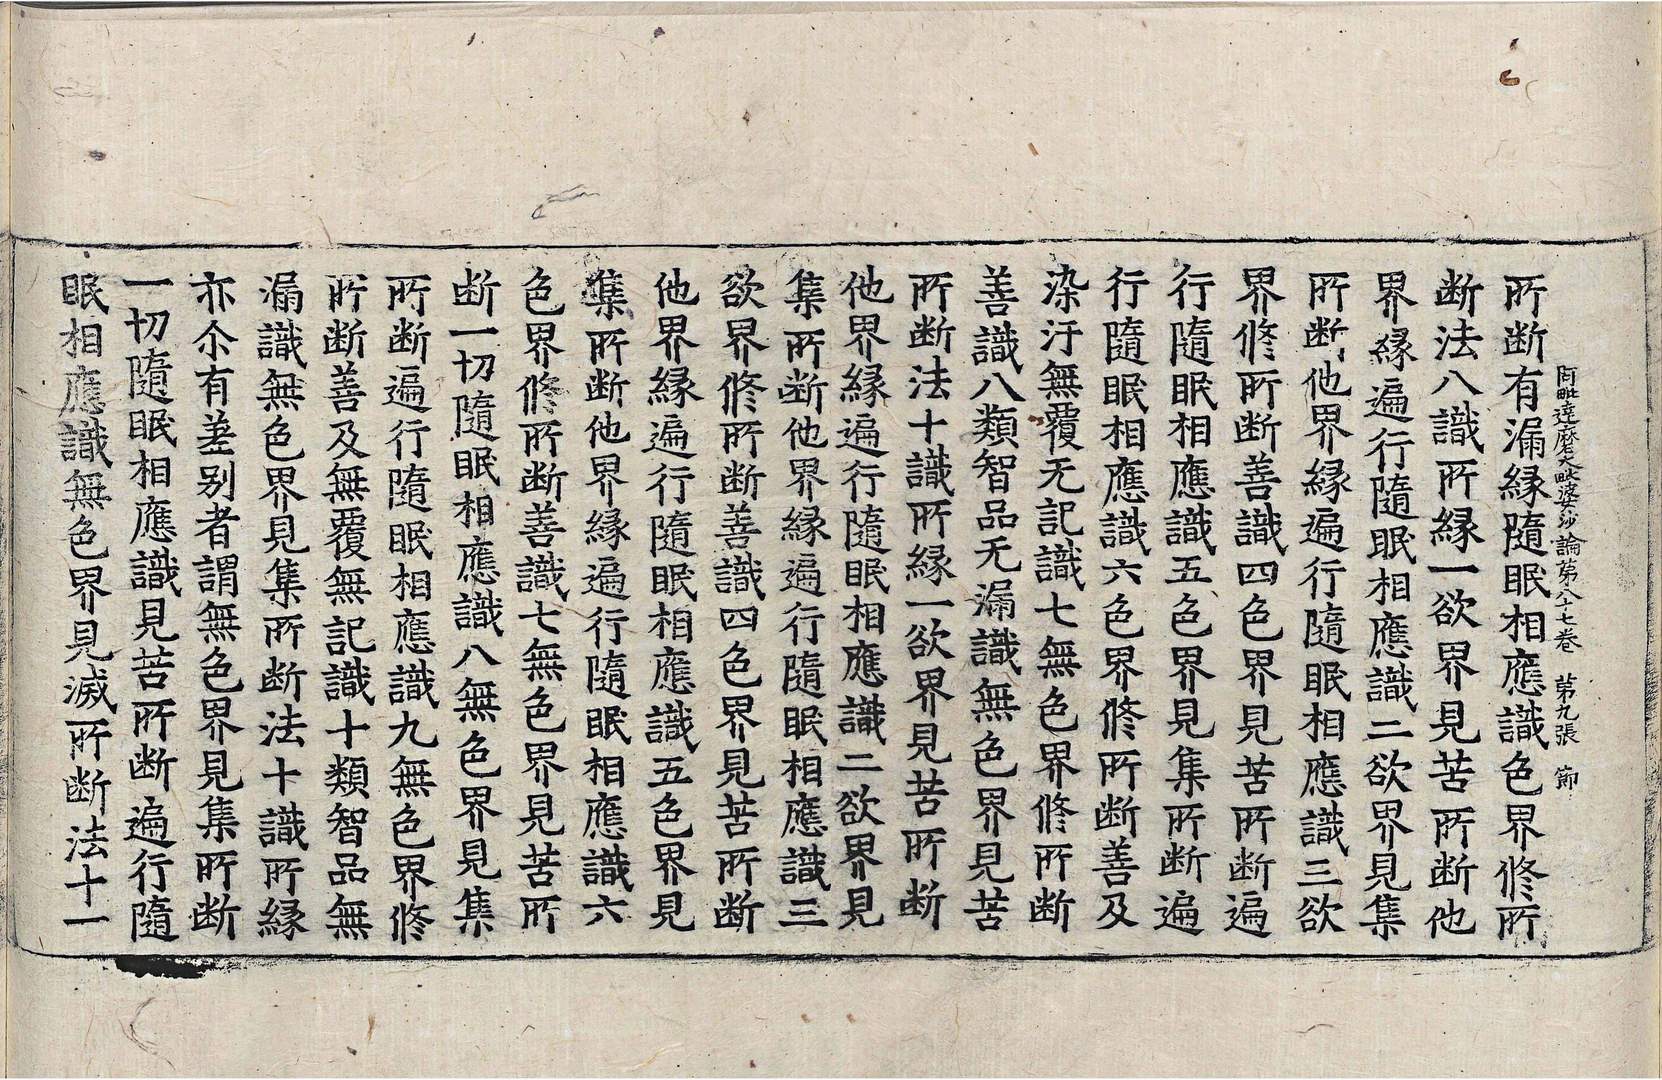 阿毗達磨大毗婆沙論第八十七卷 第九張 節
所断有漏緣隨眠相應識色界修所
断法八識所緣一欲界見苦所断他
界緣遍行隨眠相應識二欲界見集
所断他界緣遍行隨眠相應識三欲
界修所断善識四色界見苦所断遍
行隨眠相應識五色界見集所断遍
行隨眠相應識六色界修所断善及
染汙無覆无記識七無色界修所断
善識八類智品无漏識無色界見苦
所断法十識所緣一欲界見苦所断
他界緣遍行隨眠相應識二欲界見
集所断他界緣遍行隨眠相應識三
欲界修所断善識四色界見苦所断
他界緣遍行隨眠相應識五色界見
集所断他界緣遍行隨眠相應識六
色界修所断善識七無色界見苦所
断一切隨眠相應識八無色界見集
所断遍行隨眠相應識九無色界修
所断善及無覆無記識十類智品無
漏識無色界見集所断法十識所緣
亦尒有差別者謂無色界見集所断
一切隨眠相應識見苦所断遍行隨
眠相應識無色界見滅所断法十一